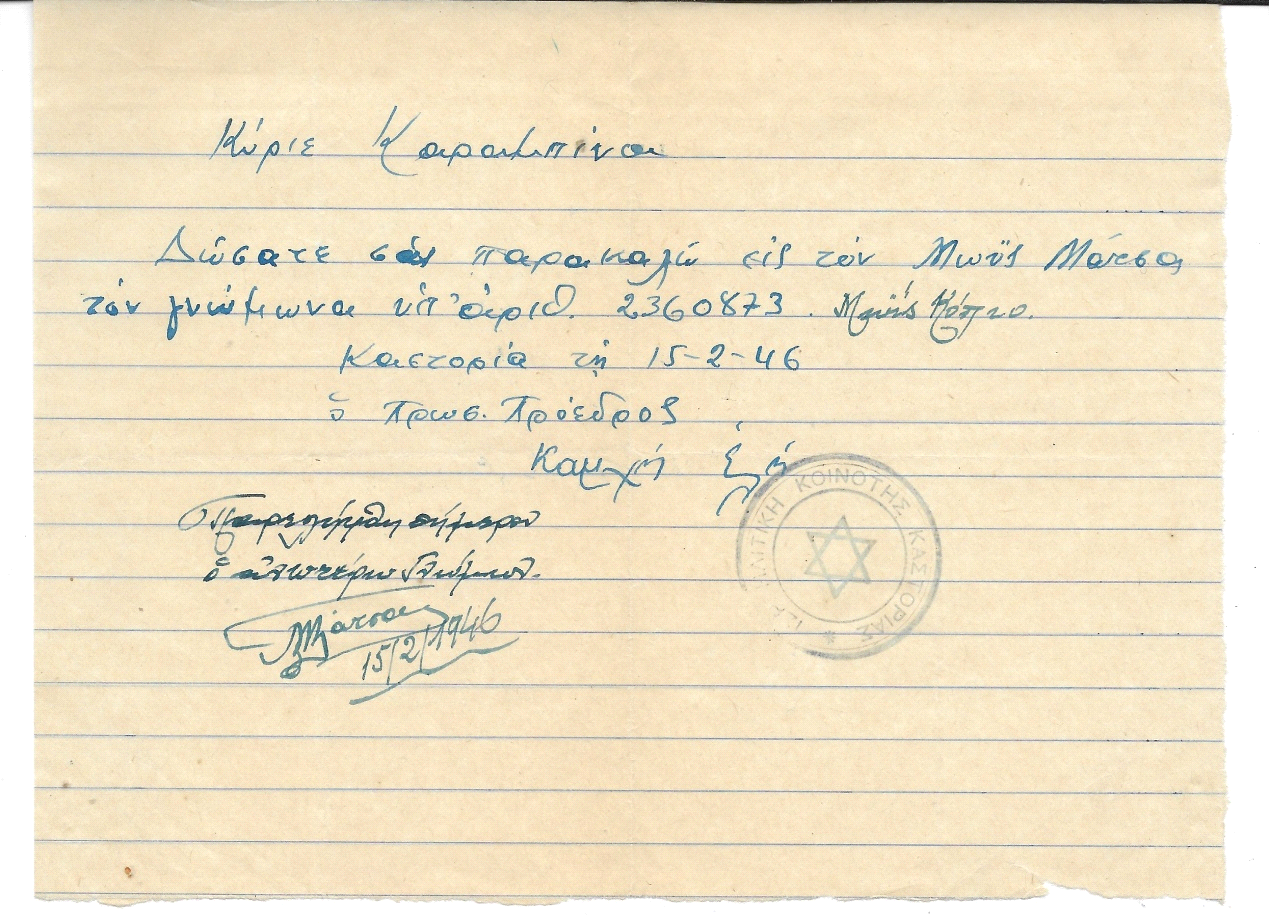 Κύριε Καραμπίνα
Δώσατε σας παρακαλώ εις τον Μωϋς Μάτσα
τόν γνώμωνα υπ' αριθ. 2360873. Μωϋς Κόπιο.
Καστορία τη 15-2-46
ὁ Πρωσ. Πρόεδρος
Καμχή Ελή
Παρελήφθη σήμερον
ὁ ανωτέρω Γνώμων.
Μάτσας
15/2/1946
ΙΣΡ ΛΙΤΙΚΗ ΚΟΙΝΟΤΗΣ ΚΑΣΤΟΡΙΑΣ *